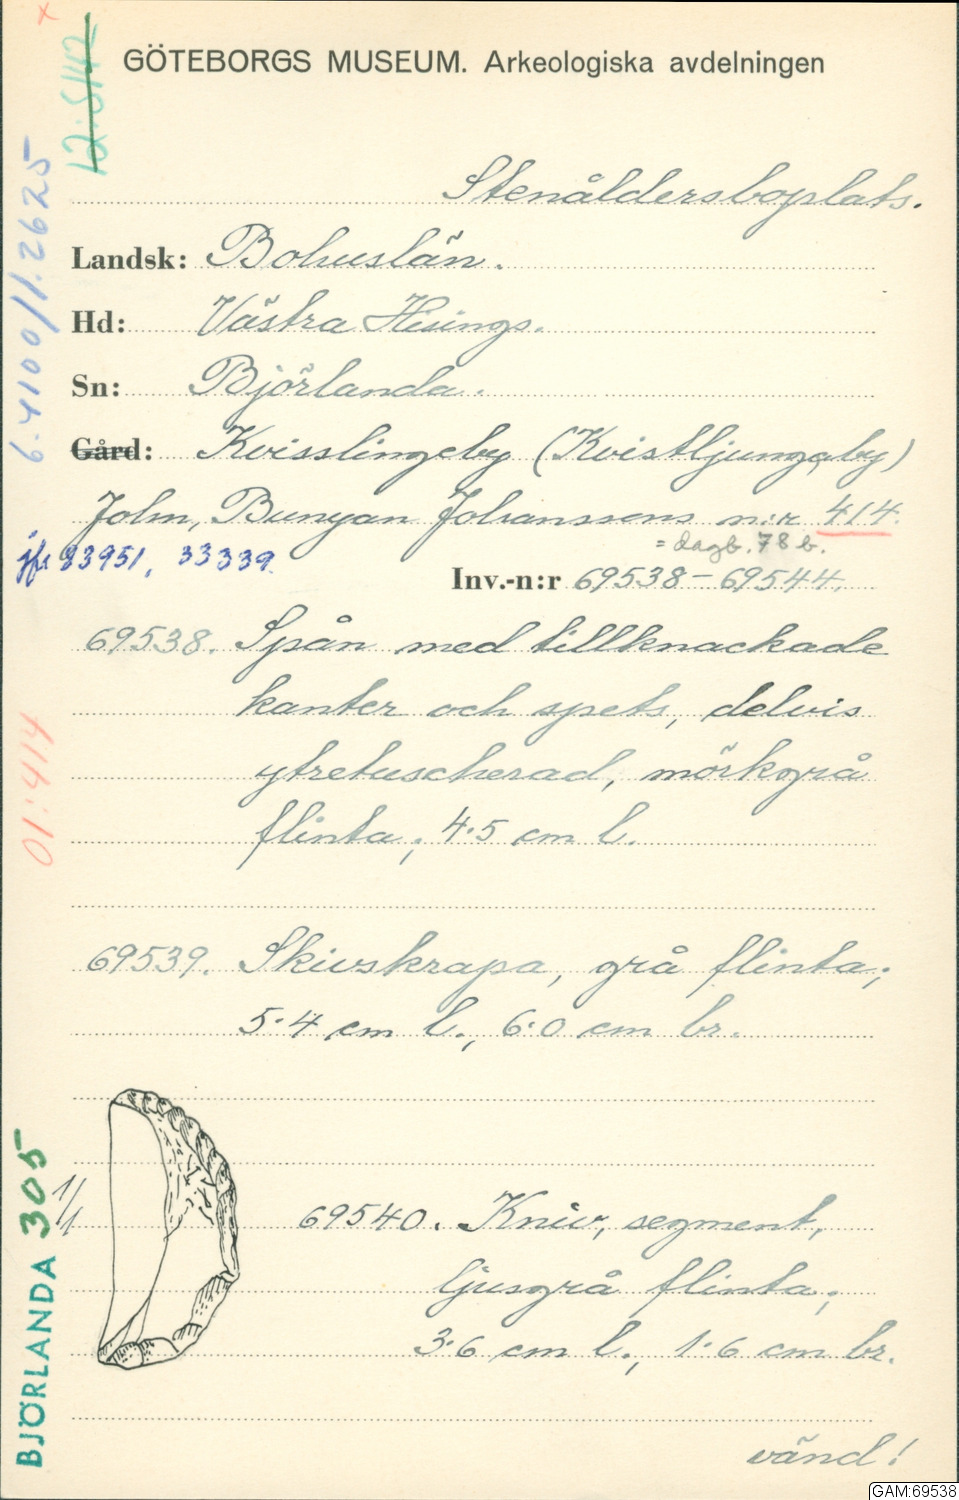 GÖTEBORGS MUSEUM. Arkeologiska avdelningen
12:5142
6.4100/1.2625
Stenåldersboplats.
Landsk: Bohuslän.
Hd: Västra Hisings.
Sn: Björlanda.
Gård: Kvisslingeby (Kvistljungeby)
John, Bunyan Johanssons n:r 414.
= dagb. 78 b.
jfr 33951, 33339
Inv.-n:r 69538-69544.
69538. Spån med tillknackade
kanter och spets, delvis
ytretuscherad, mörkgrå
flinta; 4·5 cm l.
01:414
69539. Skivskrapa, grå flinta;
5·4 cm l., 6·0 cm br.
1/1
69540. Kniv, segment,
ljusgrå flinta;
3·6 cm l., 1·6 cm br.
BJÖRLANDA 305
vänd!
GAM:69538